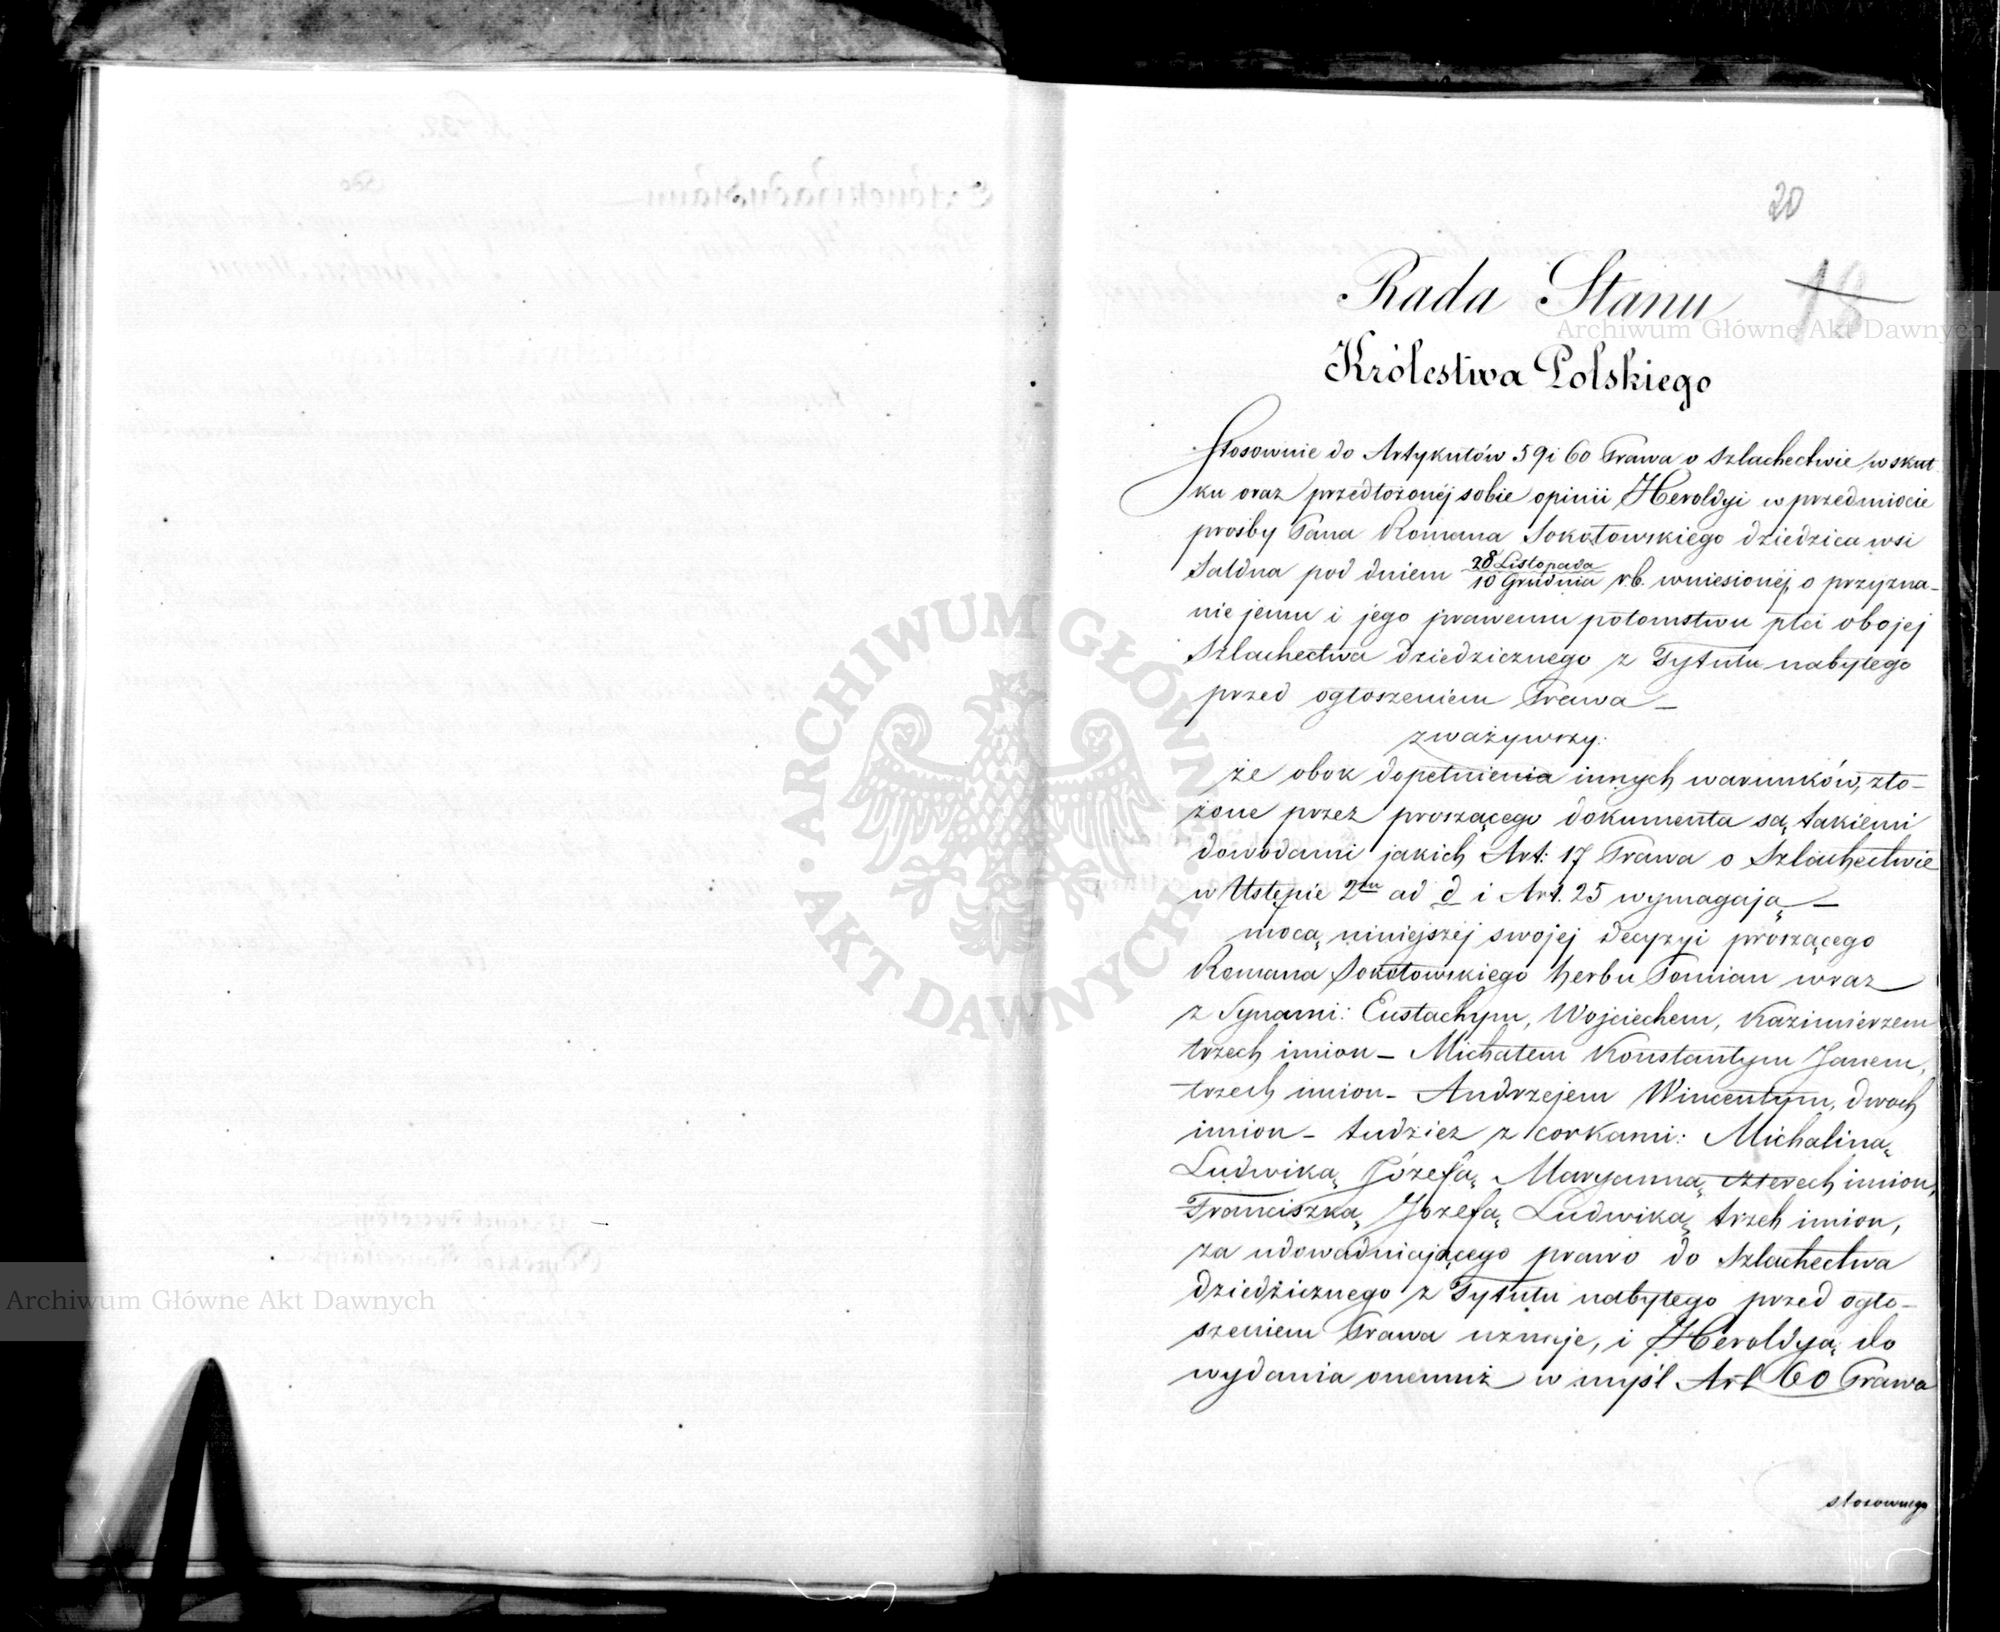 20
18
Rada Stanu
Królestwa Polskiego
Stosownie do Artykułów 59 i 60 Prawa o Szlachectwie, w skut
ku oraz przedłożonéj sobie opinii Heroldyi w przedmiocie
prośby Pana Romana Sokołowskiego dziedzica wsi
Saldna pod dniem 28 Listopada / 10 Grudnia r.b. wniesionéj, o przyzna-
nie jemu i jego prawemu potomstwu płci obojej
Szlachectwa dziedzicznego z Tytułu nabytego
przed ogłoszeniem Prawa —
zważywszy:
że obok dopełnienia innych warunków, zło-
żone przez proszącego dokumenta są takiemi
dowodami jakich Art: 17 Prawa o Szlachectwie
w Ustępie 2m ad d i Art. 25 wymagają —
mocą niniejszéj swojej decyzyi proszącego
Romana Sokołowskiego herbu Pomian wraz
z Synami: Eustachym, Wojciechem, Kazimierzem
trzech imion — Michałem Konstantym Janem,
trzech imion — Andrzejem Wincentym, dwoch
imion — tudzież z corkami: Michaliną
Ludwiką Józefą Maryanną czterech imion,
Franciszką Jozefą Ludwiką trzech imion,
za udowadniającego prawo do Szlachectwa
dziedzicznego z Tytułu nabytego przed ogło-
szeniem Prawa uznaje, i Heroldyą do
wydania onemuż w myśl Art 60 Prawa
stosownego
Archiwum Główne Akt Dawnych
Archiwum Główne Akt Dawnych
ARCHIWUM GŁÓWNE AKT DAWNYCH